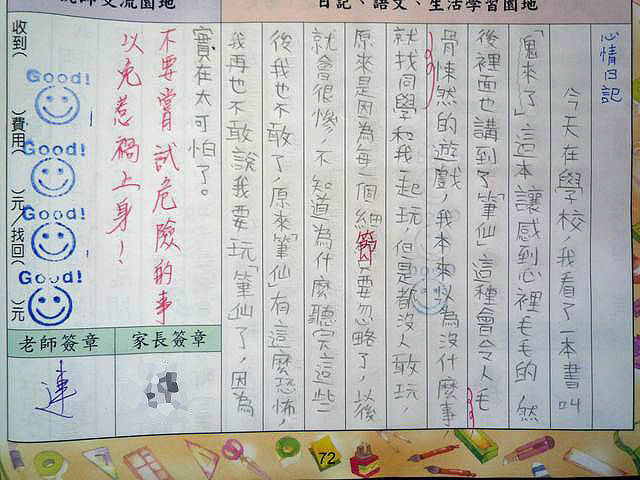 日記、語文、生活學習園地
心情日記
今天在學校,我看了一本書叫
「鬼來了」這本讓感到心裡毛毛的,然
後裡面也講到了「筆仙」這種會令人毛
骨悚然的遊戲,我本來以為沒什麼事,
就找同學和我一起玩,但是都沒人敢玩,
原來是因為每一個細節只要忽略了,以後
就會很慘,不知道為什麼聽完這些
後我也不敢了,原來「筆仙」有這麼恐怖,
我再也不敢說我要玩「筆仙了,因為
實在太可怕了。
不要嘗試危險的事
以免惹禍上身!
師交流園地
Good!
Good!
Good!
Good!
收到( )費用( )元/找回( )元
家長簽章
老師簽章
連
72